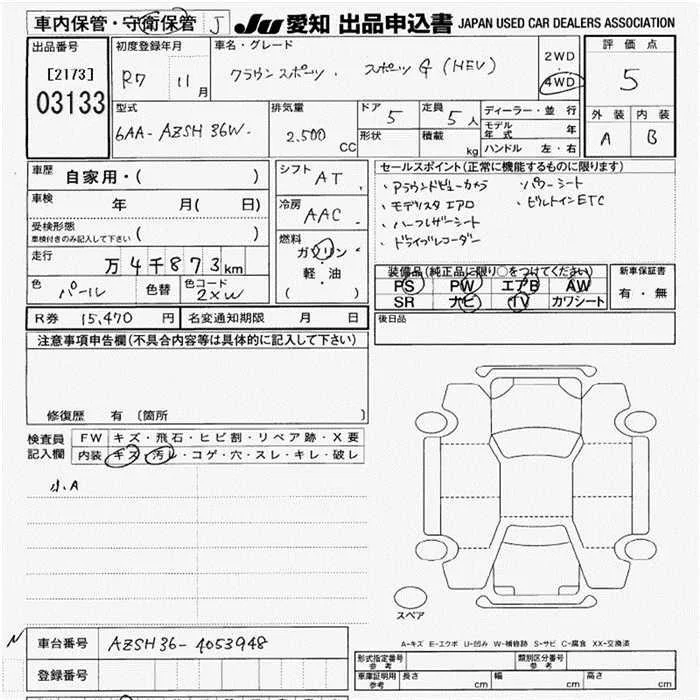 車内保管・守衛保管 J JU 愛知 出品申込書 JAPAN USED CAR DEALERS ASSOCIATION
出品番号 初度登録年月 車名・グレード 2WD 評価点
[2173] R7 11月 クラウンスポーツ . スポーツ G (HEV) ・ 4WD 5
03133
型式 排気量 ドア 5 定員 5人 ディーラー・並行 外装 内装
6AA-AZSH36W- 2.500 CC 形状 積載 kg モデル年式 年 A B
ハンドル 左・右
車歴 自家用・( ) シフト AT . セールスポイント(正常に機能するものに限ります)
車検 年 月( 日) 冷房 AAC . ・アラウンドビューカメラ ・パワーシート
・モデリスタエアロ ・ビルトインETC
受検形態 ・ハーフレザーシート
車検付きのみ記入して下さい ( ) 燃料 ・ドライブレコーダー
走行 万4千873km ガソリン・
軽・油
( ) 装備品(純正品に限り○をつけてください) 新車保証書
色 パール 色替 色コード 2XW PS PW エアB AW 有・無
SR ナビ TV カワシート
R券 15,470 円 名変通知期限 月 日 後日品
注意事項申告欄(不具合内容等は具体的に記入して下さい)
修復歴 有 〔箇所 〕
検査員 FW キズ・飛石・ヒビ割・リペア跡・X要
記入欄 内装 キズ・汚レ・コゲ・穴・スレ・キレ・破レ
小A
スペア
A-キズ E-エクボ U-凹み W-補修跡 S-サビ C-腐食 XX-交換済
N 車台番号 AZSH36-4053948
形式指定番号 参考 類別区分番号 参考
登録番号 車庫証明用 参考 長さ cm 幅 cm 高さ cm